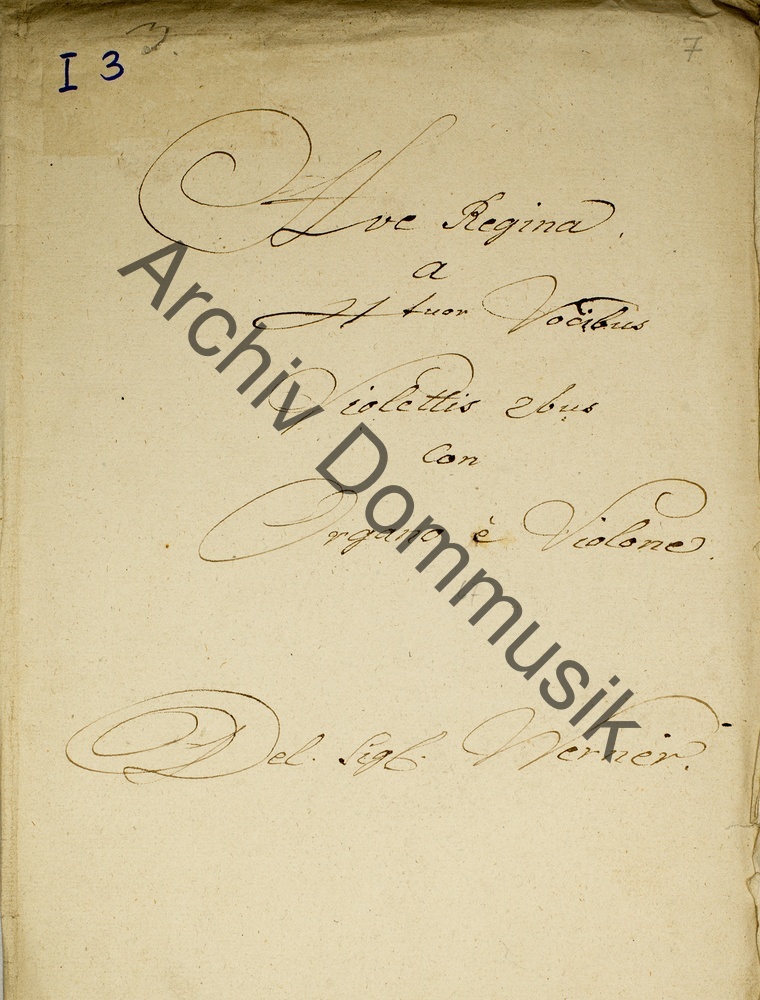 I 3
7
Ave Regina.
a
4tuor Vocibus
Violettis 2bus
Con
Organo è Violone.
Del. Sigl. Werner.
Archiv Dommusik